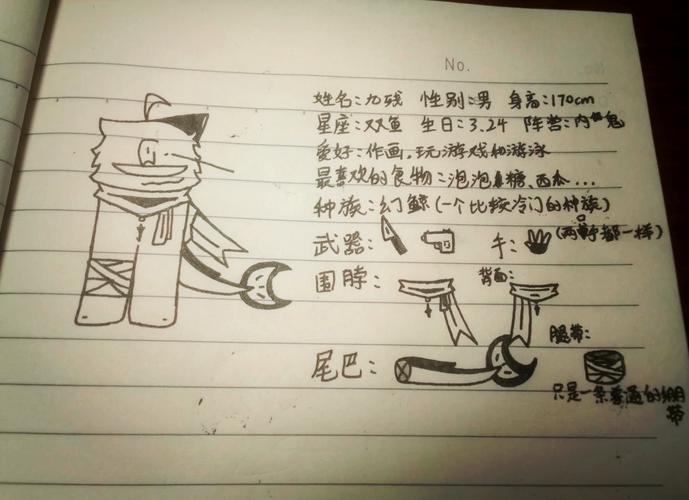 No.
姓名：九残 性别：男 身高：170cm
星座：双鱼 生日：3.24 阵营：内鬼
爱好：作画，玩游戏和游泳
最喜欢的食物：泡泡糖、西瓜...
种族：幻鲸（一个比较冷门的种族）
武器： 手： （两都一样）
围脖： 背面：
腿带：
尾巴：
只是一条普通的绷
带